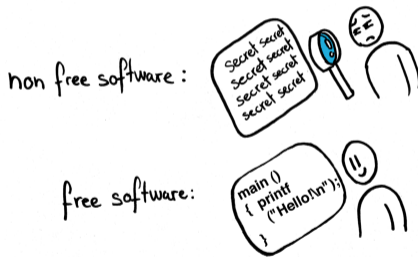 non free software:
secret secret
secret secret
secret secret
secret secret
free software:
main ()
{ printf
("Hello!\n");
}